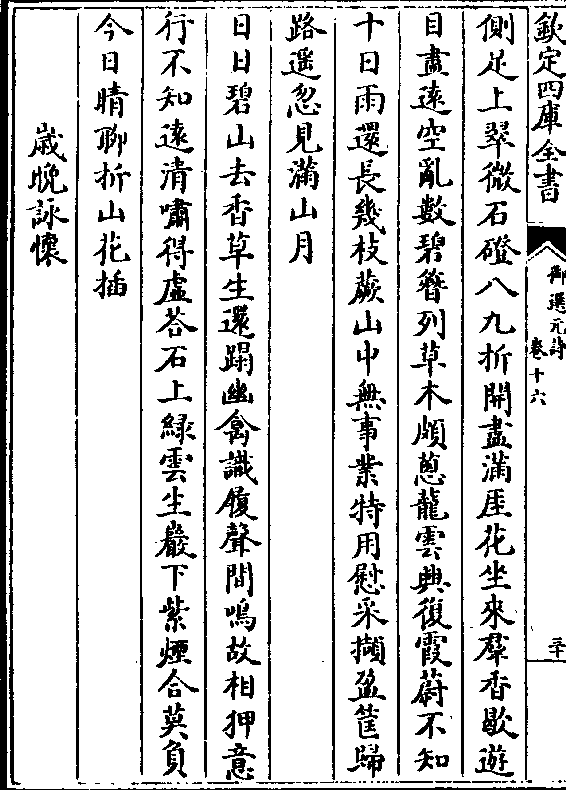 欽定四庫全書
御選元詩
卷十六
三十
側足上翠微石磴八九折開盡滿厓花坐來羣香歇遊
目盡遠空亂數碧簪列草木頗蔥蘢雲興復霞蔚不知
十日雨還長幾枝蕨山中無事業特用慰采擷盈筐歸
路遥忽見滿山月
日日碧山去香草生還蹋幽禽識履聲間鳴故相押意
行不知遠清嘯得虛荅石上綠雲生巖下紫煙合莫負
今日晴聊折山花插
歲晚詠懷